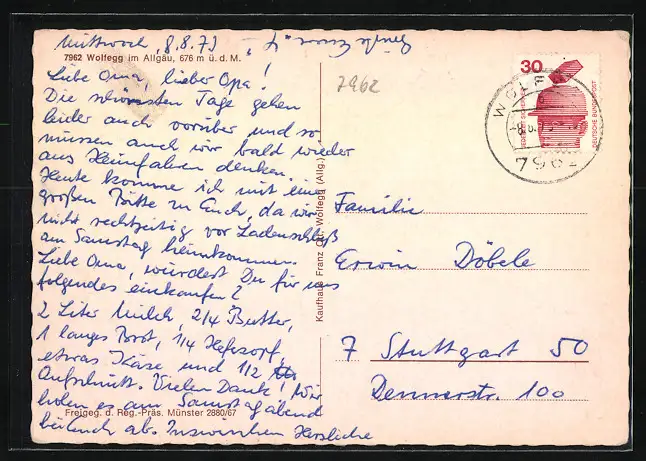 Mittwoch, 8.8.73
7962 Wolfegg im Allgäu, 676 m ü. d. M.
Liebe Oma, lieber Opa!
Die schönsten Tage gehen
leider auch vorüber und so
müssen auch wir bald wieder
ans Heimfahren denken.
Heute komme ich mit einer
großen Bitte zu Euch, da wir
nicht rechtzeitig vor Ladenschluß
am Samstag heimkommen.
Liebe Oma, würdest Du für uns
folgendes einkaufen?
2 Liter Milch, 2/4 Butter,
1 langes Brot, 1/4 Hefezopf,
etwas Käse und 1/2
Aufschnitt. Vielen Dank! Wir
holen es am Samstag abend
bei Euch ab. Inzwischen Herzliche
Freigeg. d. Reg.-Präs. Münster 2880/67
Kaufhaus Franz Wolfegg (Allg.)
7962
30
DEUTSCHE BUNDESPOST
WOLFEGG
7962
Familie
Erwin Döbele
7 Stuttgart 50
Dennerstr. 100